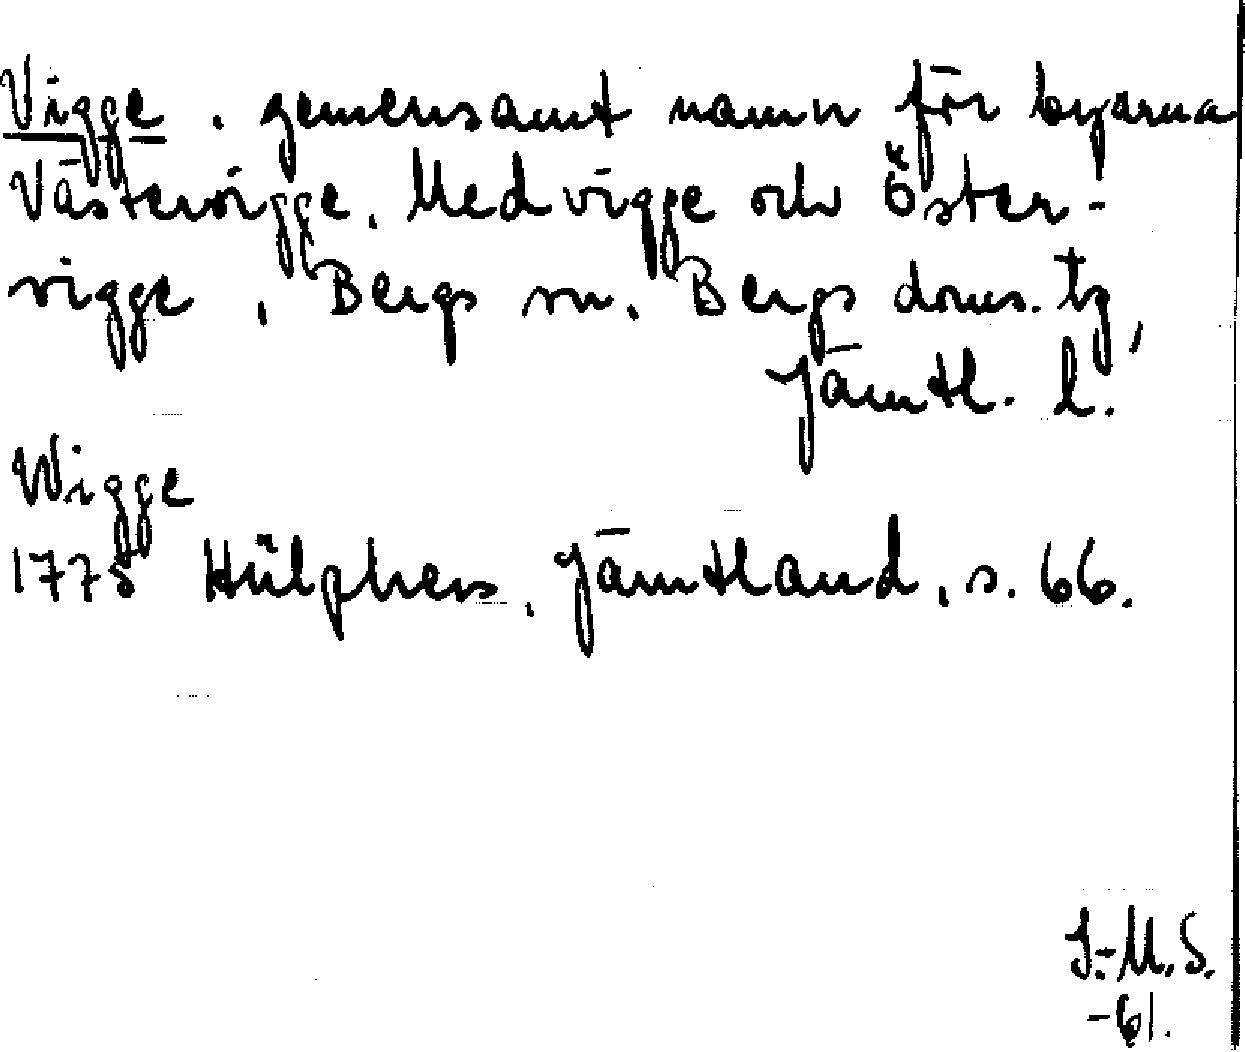 Vigge, gemensamt namn för byarna
Västervigge, Medvigge och Öster-
vigge, Bergs sn, Bergs doms. tg,
Jämtl. l.
Wigge
1775 Hülphers, Jämtland, s. 66.
I.-M.S.
-61.